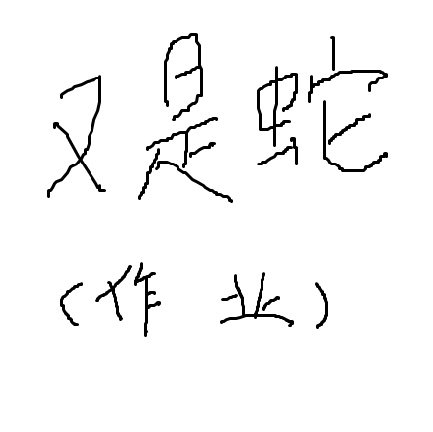 又是蛇
（作业）